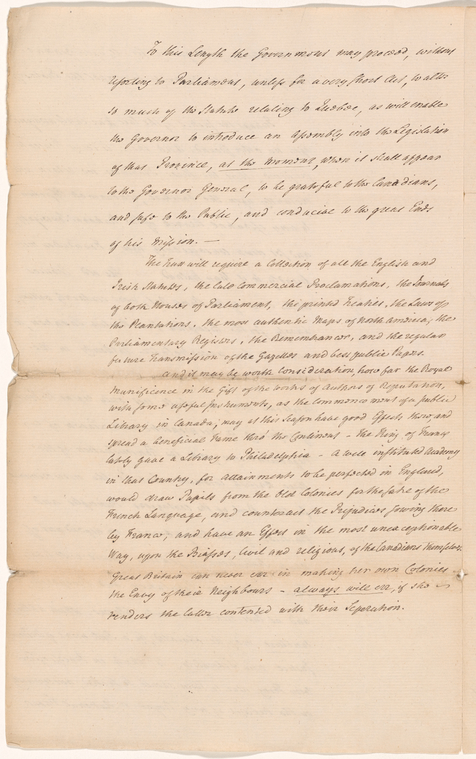 To this Length the Government may proceed, without
resorting to Parliament, unless for a very short Act, to alter
so much of the Statute relating to Quebec, as will enable
the Governor to introduce an Assembly into the Legislation
of that Province, at the Moment, when it shall appear
to the Governor General, to be grateful to the Canadians,
and safe to the Public, and conducial to the great Ends
of his Mission. —
The Trust will require a Collection of all the English and
Irish Statutes, the late Commercial Proclamations, the Journals
of both Houses of Parliament, the printed Treaties, the Laws of
the Plantations, the most authentic Maps of North America, the
Parliamentary Registers, the Remembrancer, and the regular
future Transmission of the Gazettes and best public Papers.
And it may be worth Consideration, how far the Royal
Munificence in the Gift of the Works of Authors of Reputation,
with some useful Instruments, as the Commencement of a public
Library in Canada, may at this Season have good Effects there, and
spread a beneficial Fame thro' the Continent — the King of France
lately gave a Library to Philadelphia — A well instituted Academy
in that Country, for Attainments to be perfected in England,
would draw Pupils from the Old Colonies for the sake of the
French Language, and counteract the Prejudices sowing there
by France, and have an Effect in the most unexceptionable
Way, upon the Biasses, civil and religious, of the Canadians themselves.
Great Britain can never err in making her own Colonies
the Envy of their Neighbours — always will err, if she
renders the latter contented with their Separation.